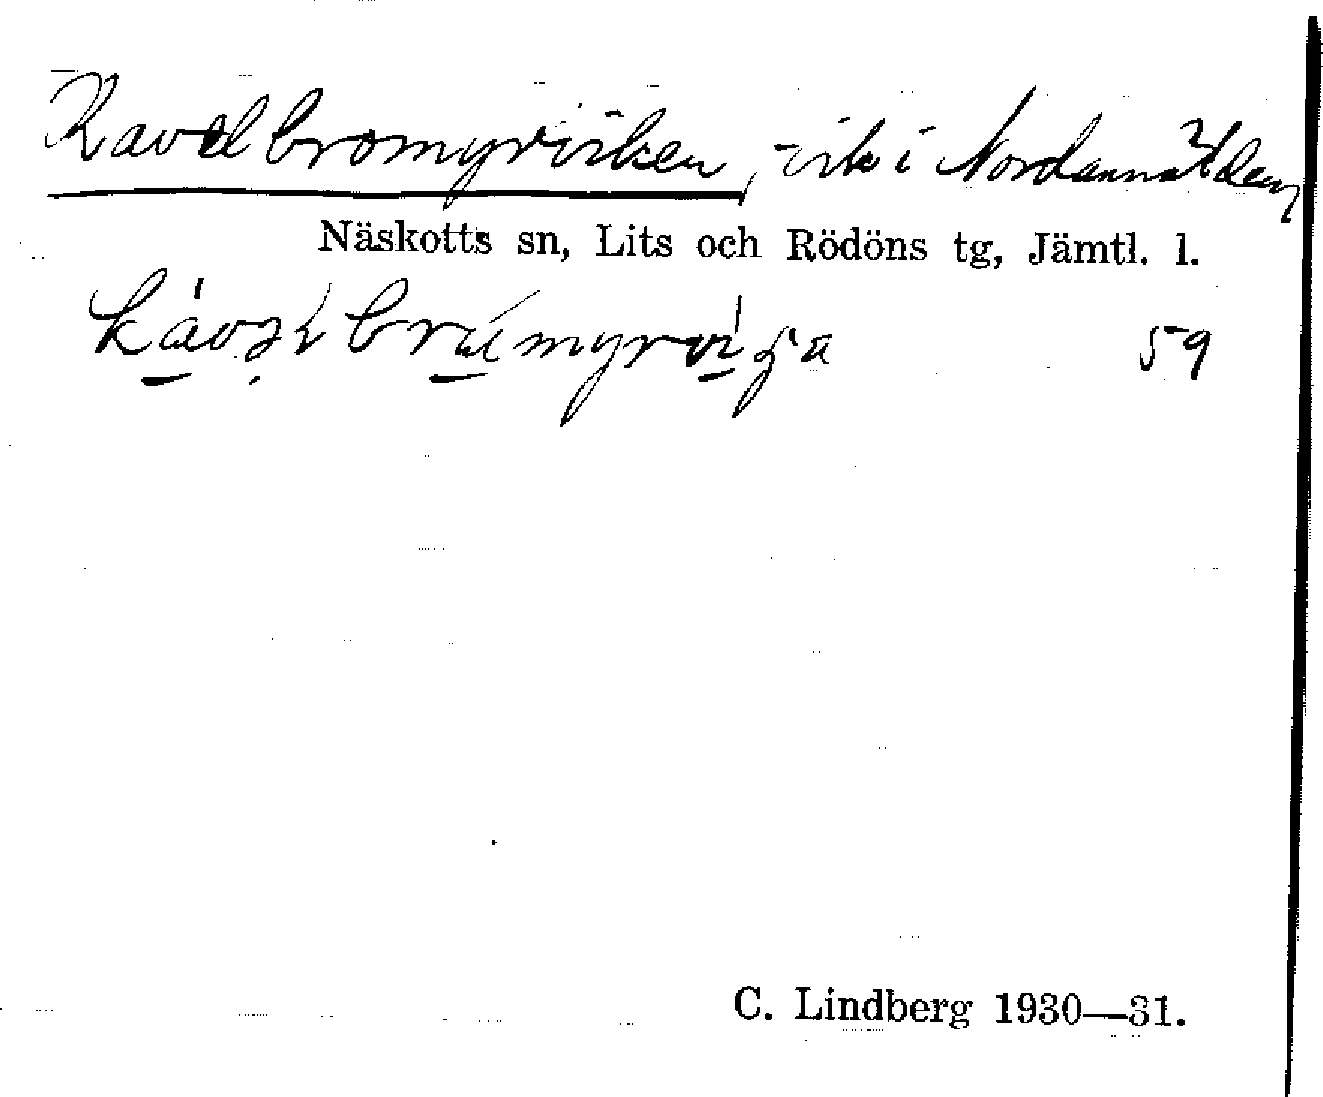 Kavelbromyrviken, vik i Nordannälden
Näskotts sn, Lits och Rödöns tg, Jämtl. l.
59
C. Lindberg 1930—31.